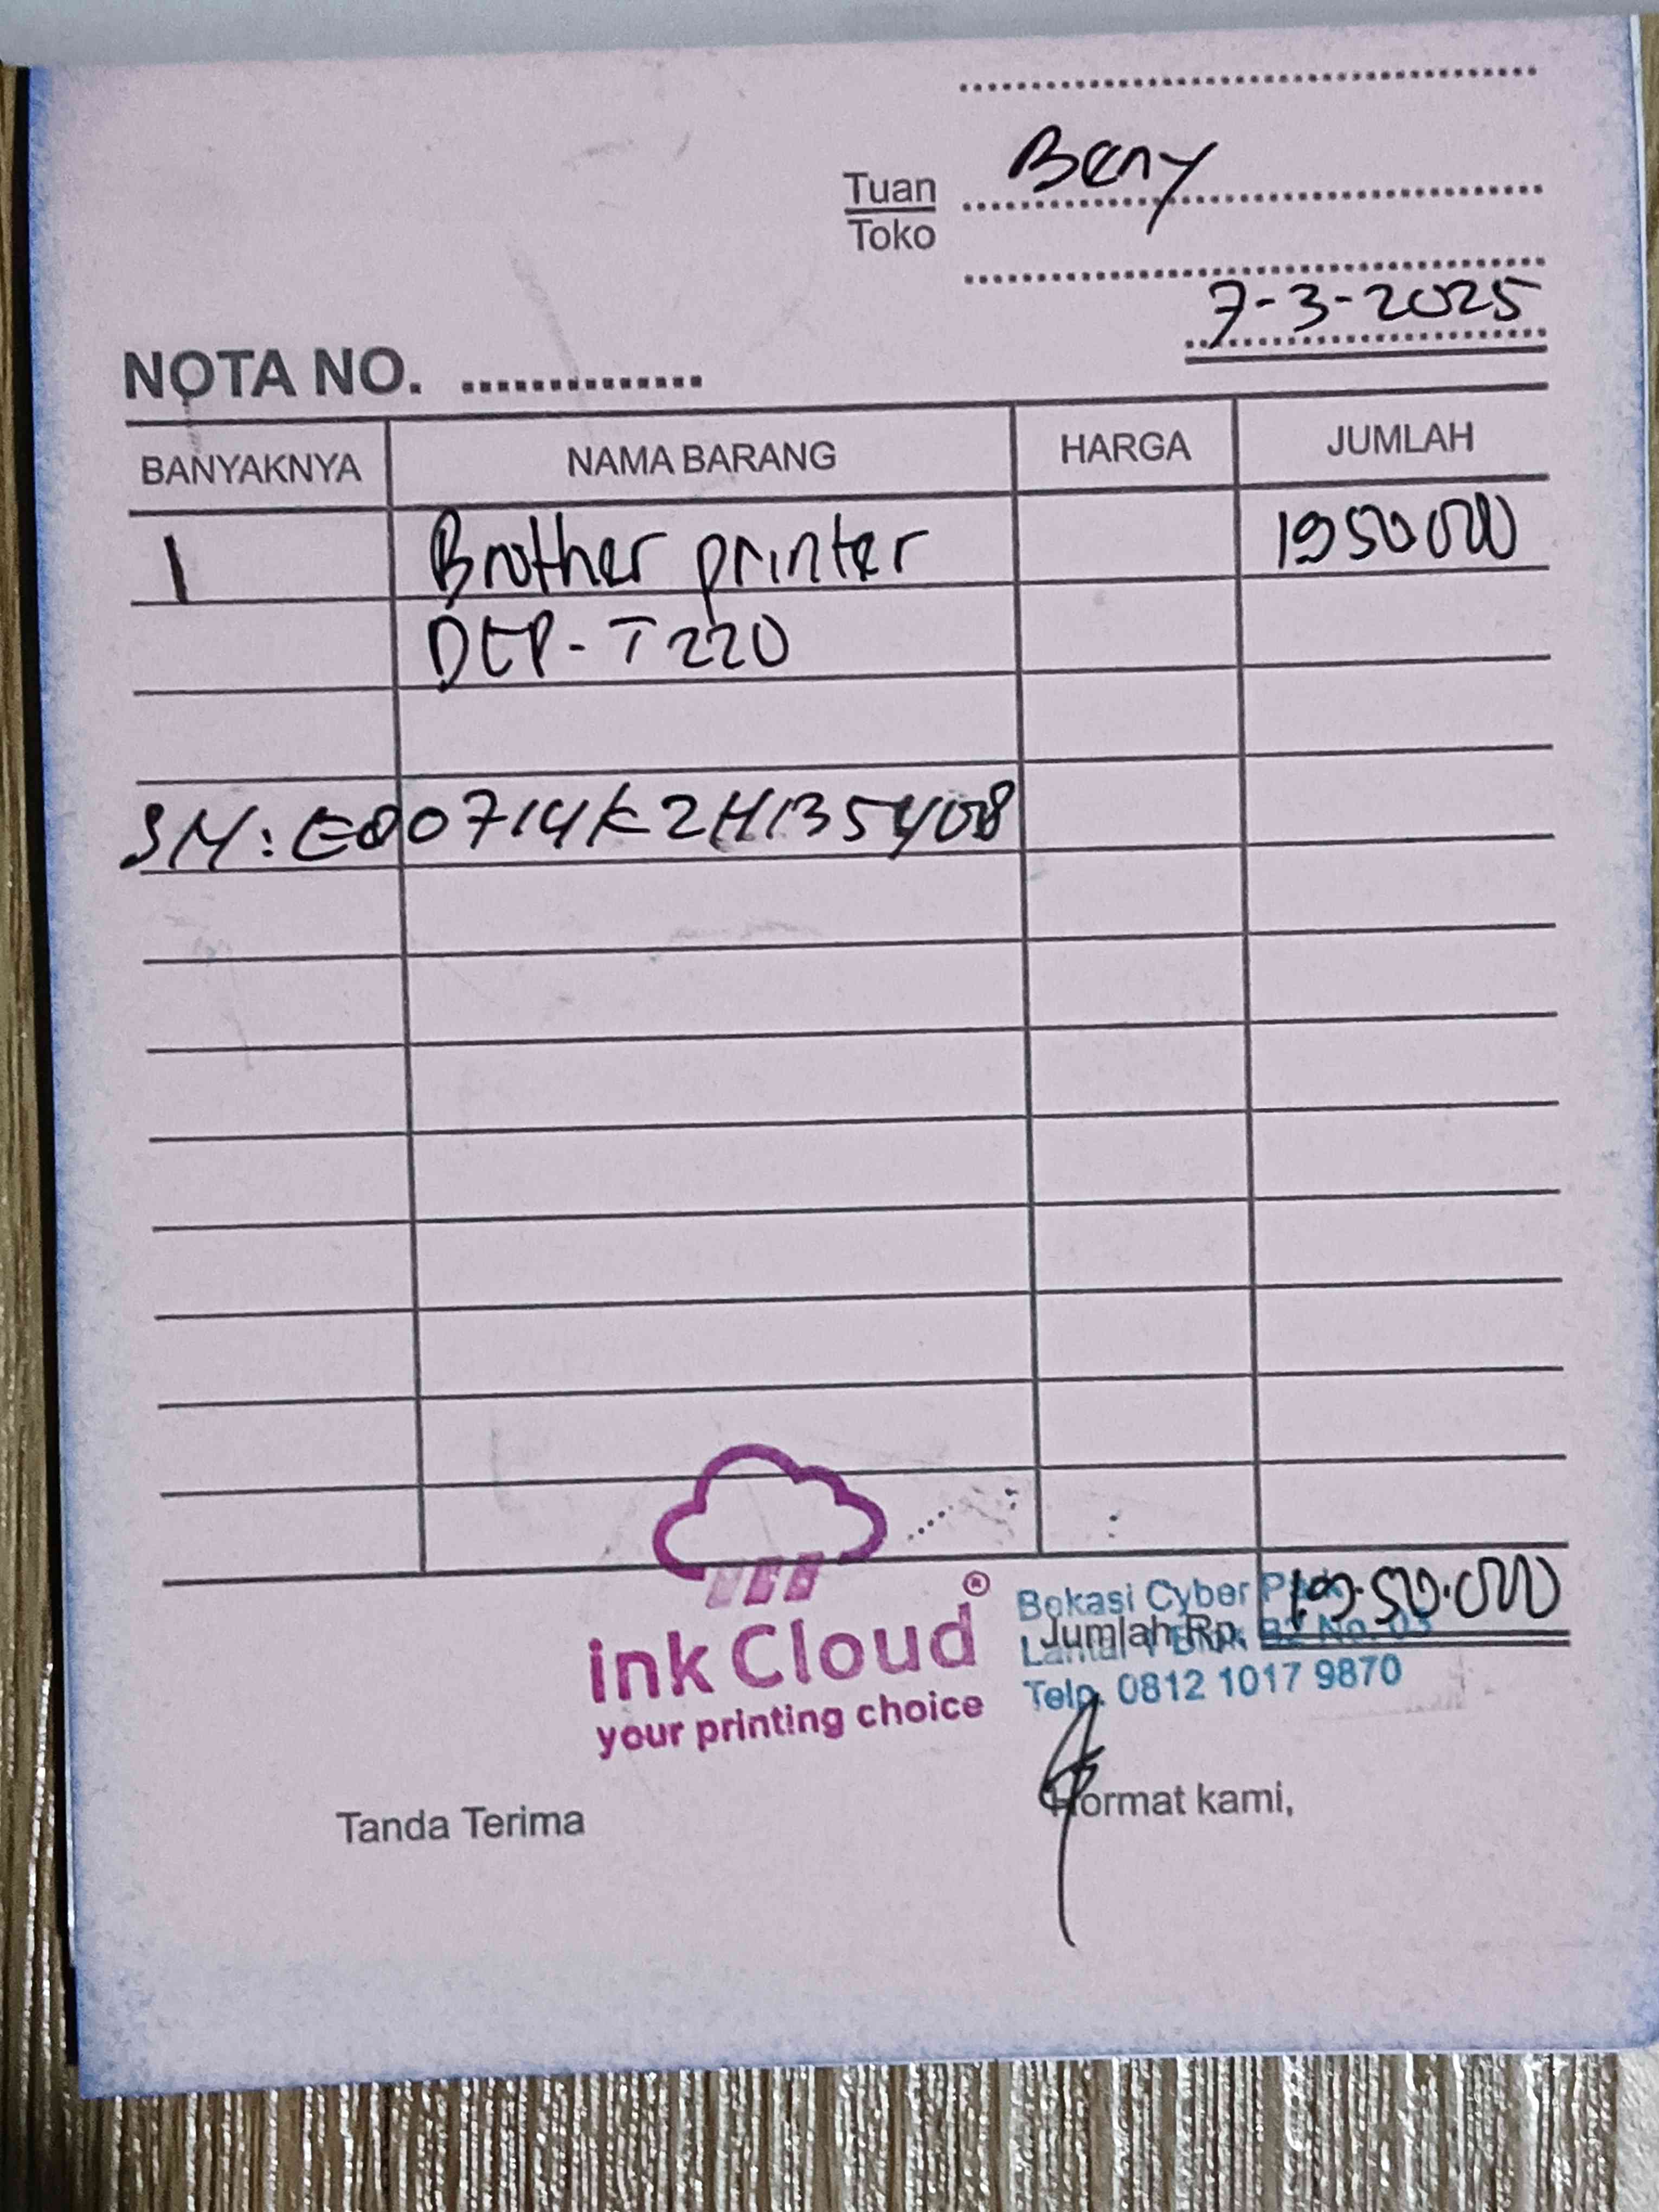 Beny
Tuan
Toko
7-3-2025
NOTA NO. ..............
BANYAKNYA NAMA BARANG HARGA JUMLAH
1 Brother printer 1950000
DCP-T220
SN: E80714K2H135408
ink Cloud®
your printing choice
Bekasi Cyber Park
Lantai 1 Blok B2 No. 03
Telp. 0812 1017 9870
Jumlah Rp. 1950.000
Tanda Terima Hormat kami,